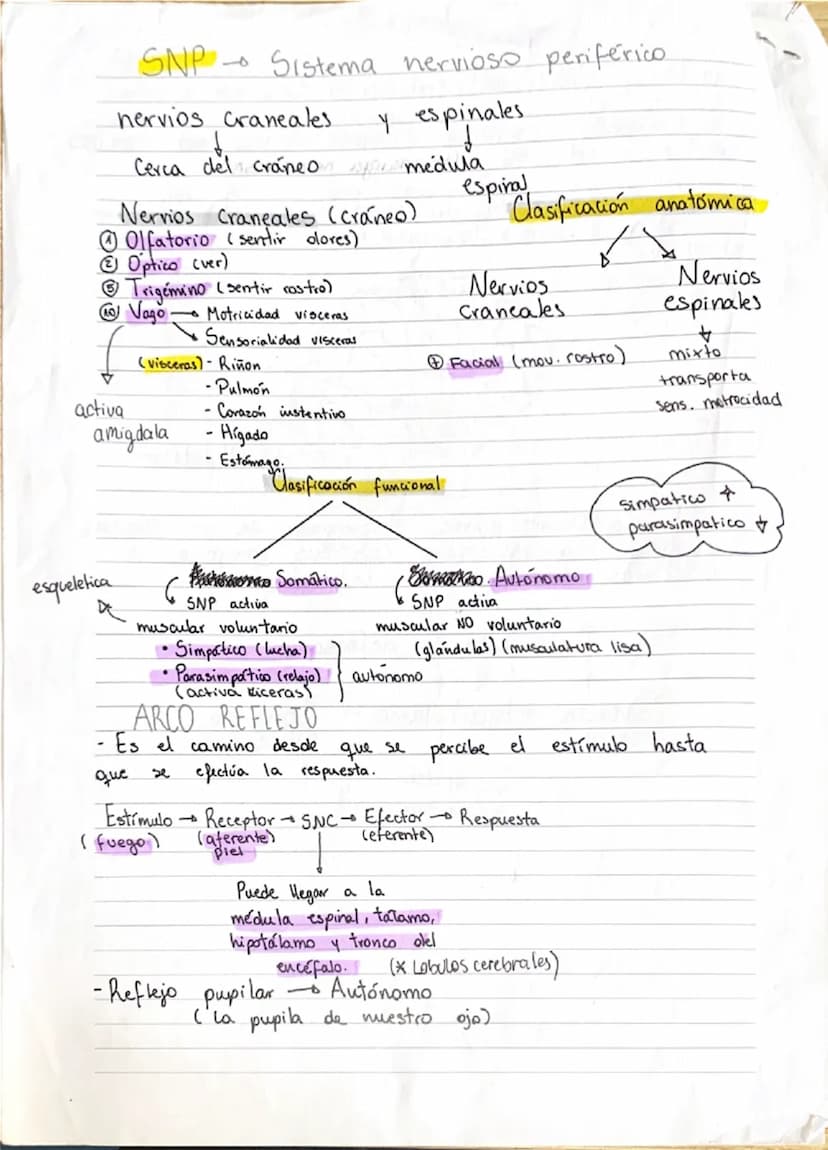 SNP → Sistema nervioso periférico
nervios craneales y espinales
↓ ↓
Cerca del cráneo médula espiral
Nervios craneales (cráneo)
① Olfatorio (sentir olores)
② Óptico (ver)
⑤ Trigémino (sentir rostro)
⑩ Vago → Motricidad vísceras
→ Sensorialidad vísceras
(vísceras) - Riñon
- Pulmón
- Corazón instentivo
- Hígado
- Estómago.
activa
amigdala
Clasificación anatómica
Nervios
craneales
⑦ Facial (mov. rostro)
Nervios
espinales
↓
mixto
transporta
sens. metrocidad
Clasificación funcional
simpatico ↑
parasimpatico ↓
Somático.
SNP activa
muscular voluntario
esqueletica
• Simpático (lucha)
• Parasimpático (relajo)
(activa viceras)
autónomo
Autónomo
SNP activa
muscular NO voluntario
(glándulas) (musculatura lisa)
ARCO REFLEJO
- Es el camino desde que se percibe el estímulo hasta
que se efectúa la respuesta.
Estímulo → Receptor → SNC → Efector → Respuesta
(fuego) (aferente) (eferente)
piel
↓
Puede llegar a la
médula espinal, tálamo,
hipotálamo y tronco del
encéfalo. (x Lobulos cerebrales)
- Reflejo pupilar → Autónomo
(La pupila de nuestro ojo)